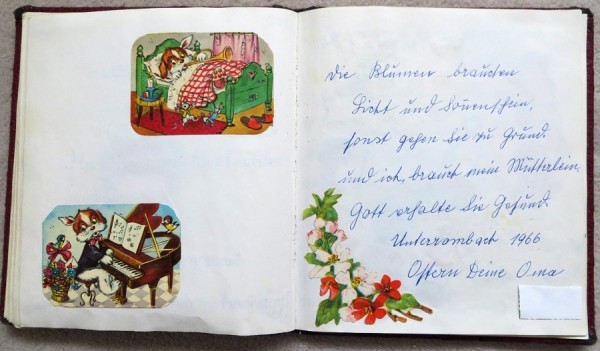 Die Blumen brauchen
Licht und Sonnenschein,
sonst gehen Sie zu Grund.
und ich, brauch mein Mütterlein,
Gott erhalte Sie Gesund.
Unterrombach 1966
Ostern Deine Oma